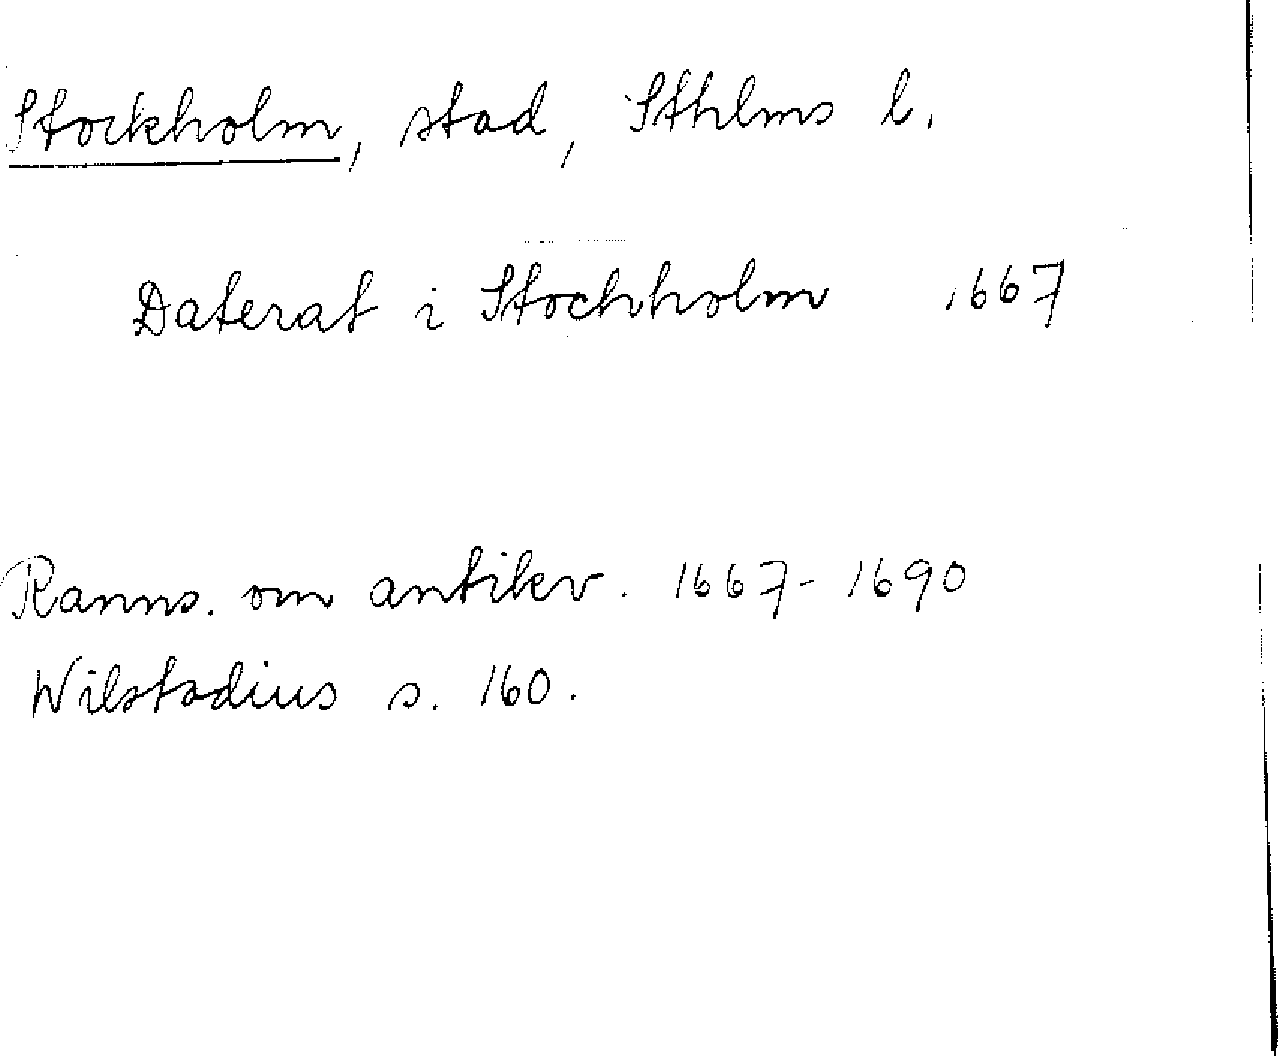 Stockholm, stad, Sthlms l.
Daterat i Stochholm 1667
Ranns. om antikv. 1667-1690
Wilstadius s. 160.